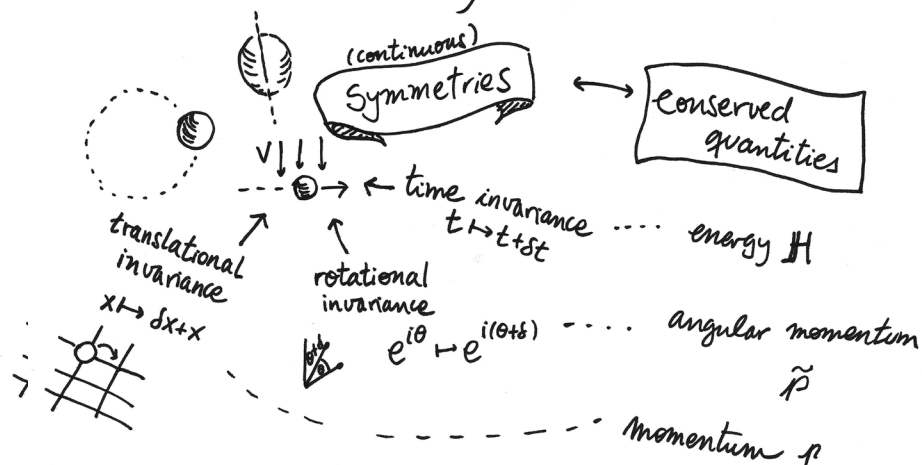 (continuous)
Symmetries
Conserved
quantities
V
time invariance
t ↦ t+δt
energy H
translational
invariance
x ↦ δx+x
rotational
invariance
θ+δ
θ
e^{iθ} ↦ e^{i(θ+δ)}
angular momentum
p̃
momentum p